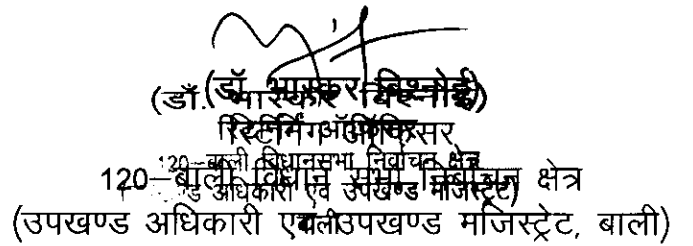 (डॉ. भास्कर बिश्नोई)
रिटर्निंग ऑफिसर
120–बाली विधान सभा निर्वाचन क्षेत्र
(उपखण्ड अधिकारी एवं उपखण्ड मजिस्ट्रेट, बाली)